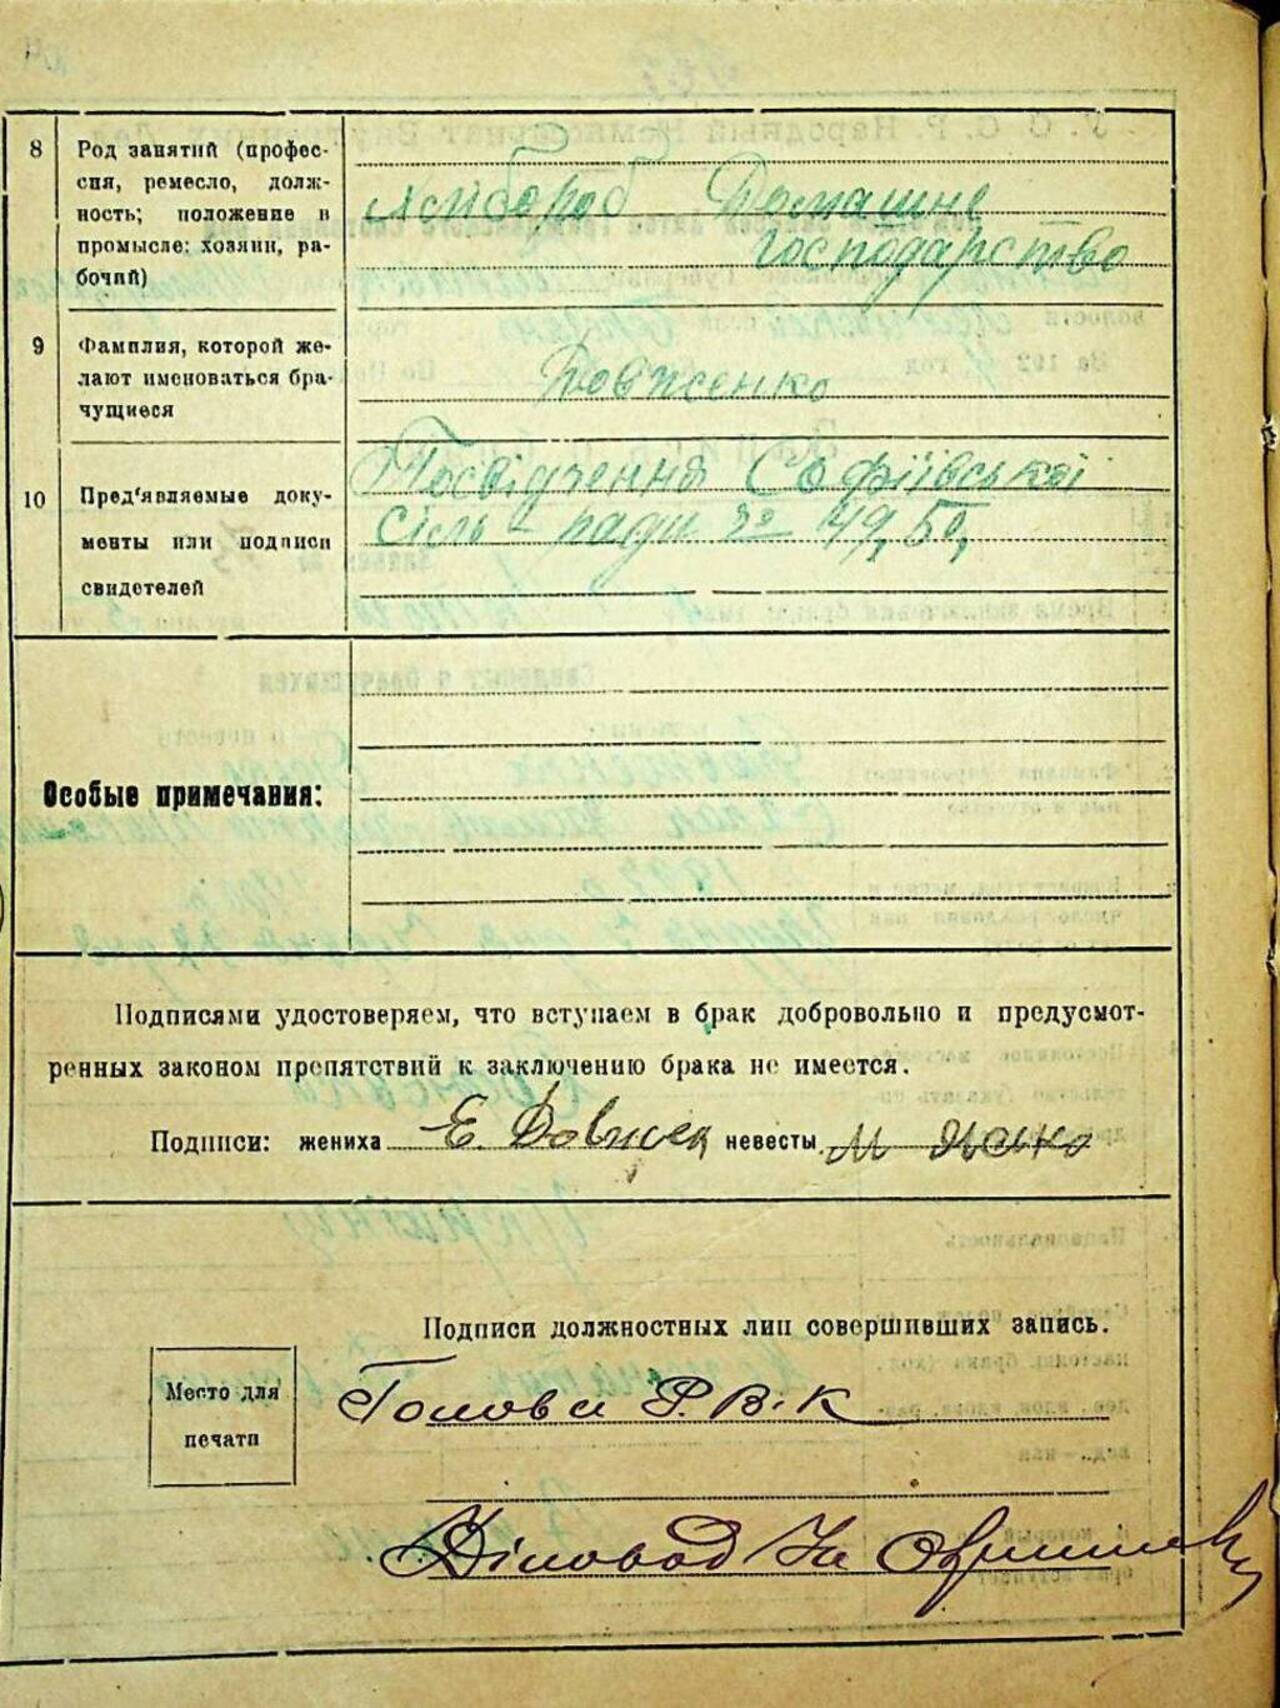 8 Род занятий (профес-
сия, ремесло, долж-
ность; положение в
промысле: хозяин, ра-
бочий)
Хлібороб Домашнє
господарство
9 Фамилия, которой же-
лают именоваться бра-
чущиеся
Довженко
10 Пред'являемые доку-
менты или подписи
свидетелей
Посвідчення Софіївської
Сіль-ради № 49, 50,
Особые примечания:
Подписями удостоверяем, что вступаем в брак добровольно и предусмот-
ренных законом препятствий к заключению брака не имеется.
Подписи: жениха Е. Довжен невесты М
Подписи должностных лиц совершивших запись.
Место для
печати
Голова Р.В.К
Діловод